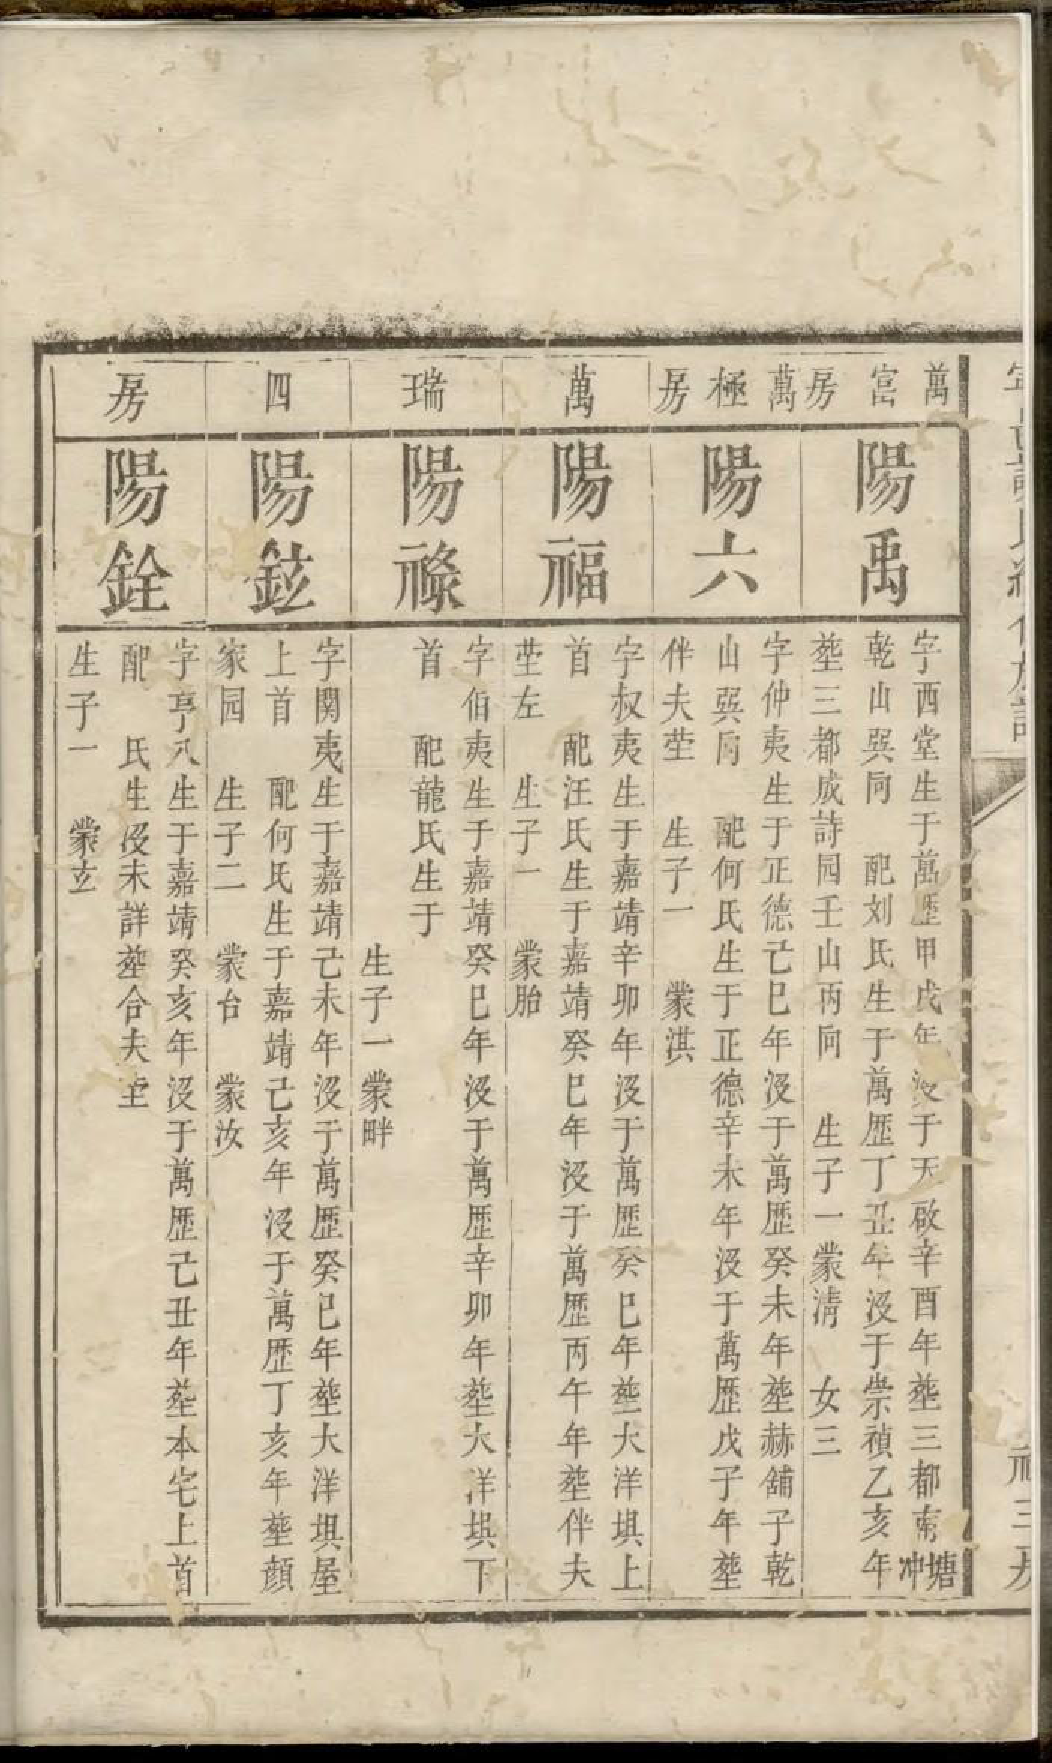 萬富房
陽禹
字酉堂生于萬歷甲戌年沒于天啟辛酉年塟三都南塘冲
乾山巽向 配刘氏生于萬歷丁丑年沒于崇禎乙亥年
塟三都成詩园壬山丙向 生子一蒙清 女三
萬極房
陽六
字仲夷生于正德己巳年沒于萬歷癸未年塟赫舖子乾
山巽向 配何氏生于正德辛未年沒于萬歷戊子年塟
伴夫塋 生子一 蒙淇
萬
陽福
字叔夷生于嘉靖辛卯年沒于萬歷癸巳年塟大洋垻上
首 配汪氏生于嘉靖癸巳年沒于萬歷丙午年塟伴夫
塋左 生子一 蒙胎
瑞
陽祿
字伯夷生于嘉靖癸巳年沒于萬歷辛卯年塟大洋垻下
首 配龍氏生于
生子一蒙畔
四
陽鉉
字関夷生于嘉靖己未年沒于萬歷癸巳年塟大洋垻屋
上首 配何氏生于嘉靖己亥年沒于萬歷丁亥年塟顔
家园 生子二 蒙台 蒙汝
房
陽銓
字亨八生于嘉靖癸亥年沒于萬歷己丑年塟本宅上首
配 氏生沒未詳塟合夫塋
生子一 蒙玄